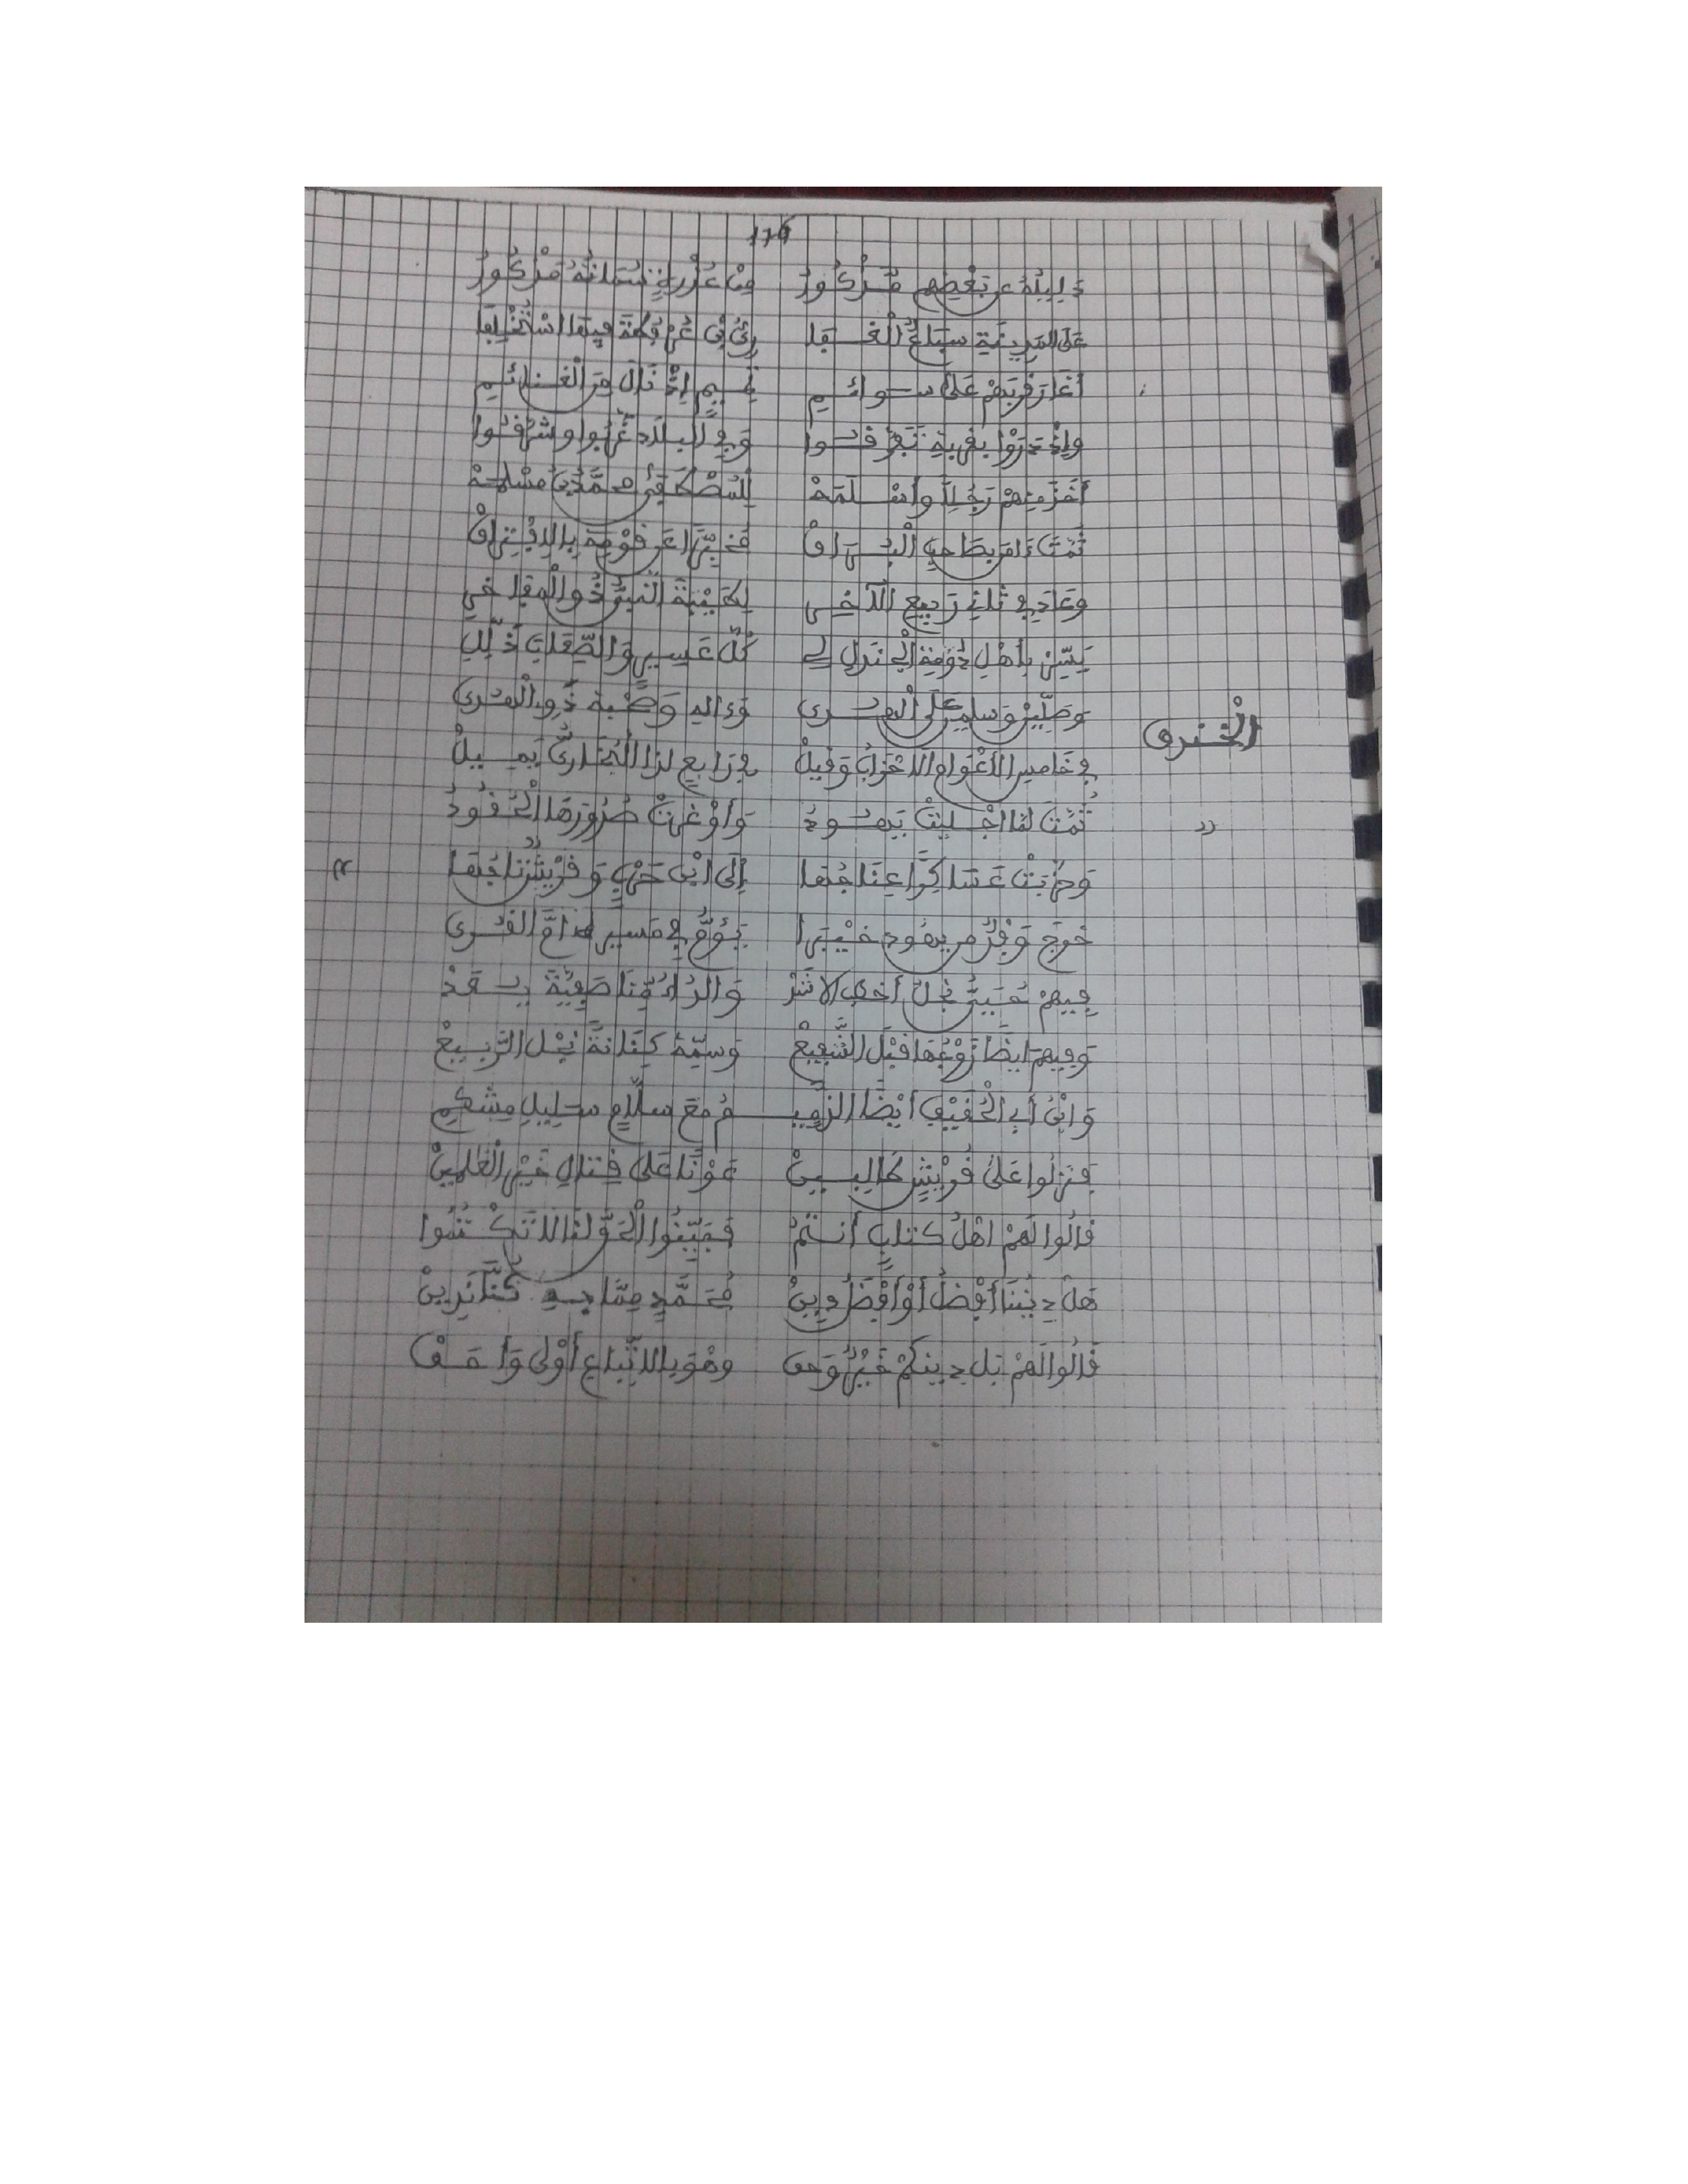 176
دليله عن بعضهم مذكور من عذرة
على المدينة سباع الغفا فيها استخلفا
أغار قربهم على سوائم إذ نال من الغنائم
وإذ دروا بقربه تفرقوا وفي البلاد غربوا وشرقوا
أخذ منهم رجلا وأسلمه للمصطفى محمد بن مسلمه
ثمت فخبرا عن قومه بالافتراق
وعاد في ثاني ربيع الآخر لطيبة النبي ذو المفاخر
يسرن بأهل دومة الجندل لي كل عسير والصعاب ذلل
وصلين وسلمن على وءاله وصحبه ذوي
الخندق
في خامس الأعوام الاحزاب وقيل في رابع لذا البخاري يميل
ثمت لما اجليت يهود وأوغرت صدورها الحقود
وحزبت عساكرا عناجفا إلى ابن حرب وقريش
خرج وفد من يهود خيبرا يؤم في مسيره أم القرى
فيهم حيي نجل أخطب الاشد والد أمنا صفية يعد
وفيهم ايضا زوجها قبل الشفيع وسمه كنانة نجل الربيع
وابن أبي الحقيق أيضا الزميم مع سلام سليل مشكم
فنزلوا على قريش طالبين عونا على قتال خير العلمين
قالوا لهم اهل كتاب أنتم فبينوا الحق لنا لا تكتموا
هل ديننا أفضل أو أفضل دين محمد مما به كنا ندين
قالوا لهم بل دينكم خير وحق وهو بالاتباع أولى وأحق